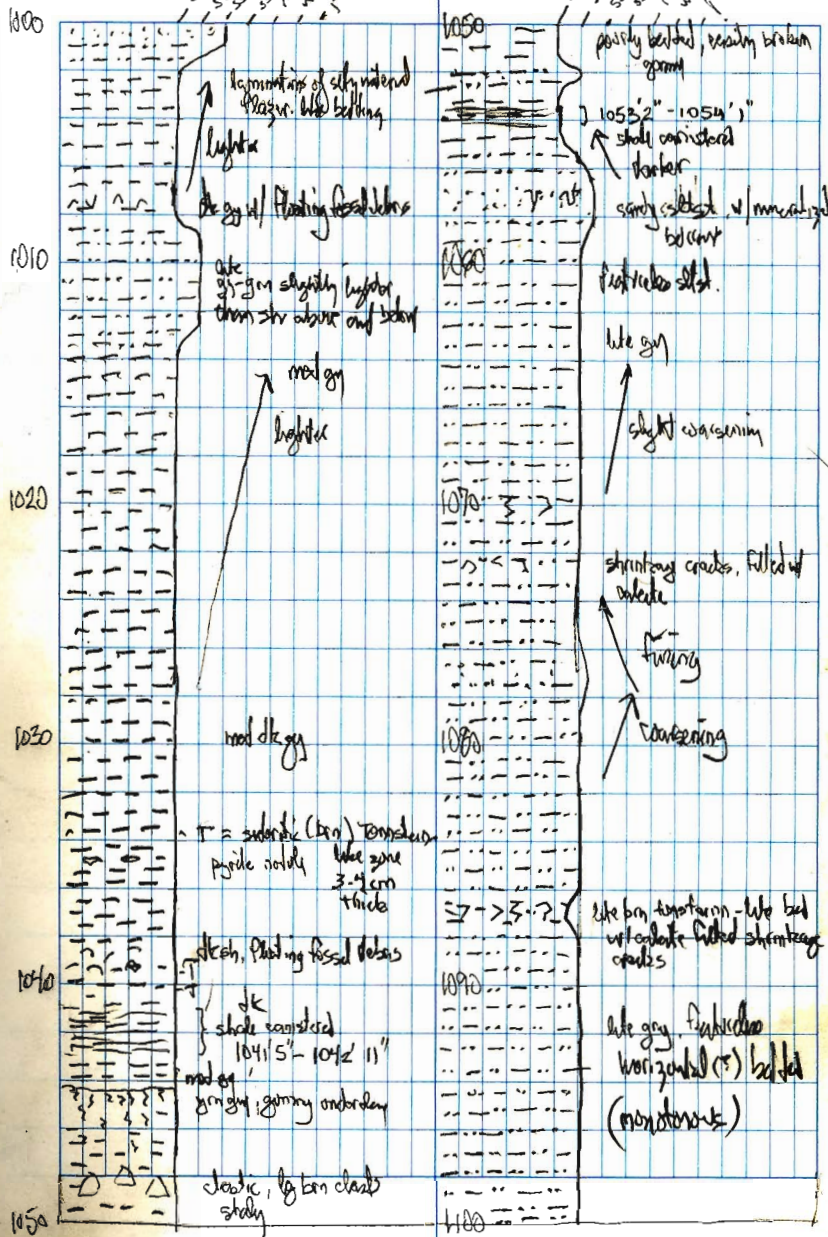 1000
laminations of silty material
flazer-like bedding
lighter
dk gy w/ floating fossil debris
1010
lite
gy-grn slightly lighter
than shr above and below
med gy
lighter
1020
1030
med dk gy
T = sideritic (brn) Tonnstein
pyrite nodule like zone
3-4 cm
thick
dk sh, floating fossil debris
1040
dk
shale canistered
1041'5" - 1042'11"
med gy
grn gry, gummy underclay
clastic, lg brn clasts
shaly
1050
1050
poorly bedded, easily broken
gummy
1053'2" - 1054'1"
shale canistered
darker
sandy sltst, w/ mineralized
burrow
1060
featureless sltst.
lite gry
slight coarsening
1070
shrinkag cracks, filled w/
calcite
fining
1080
coarsening
lite brn tonstein-like bed
w/ calcite filled shrinkage
cracks
1090
lite gray, featureless
horizontal (?) bedded
(monotonous)
1100